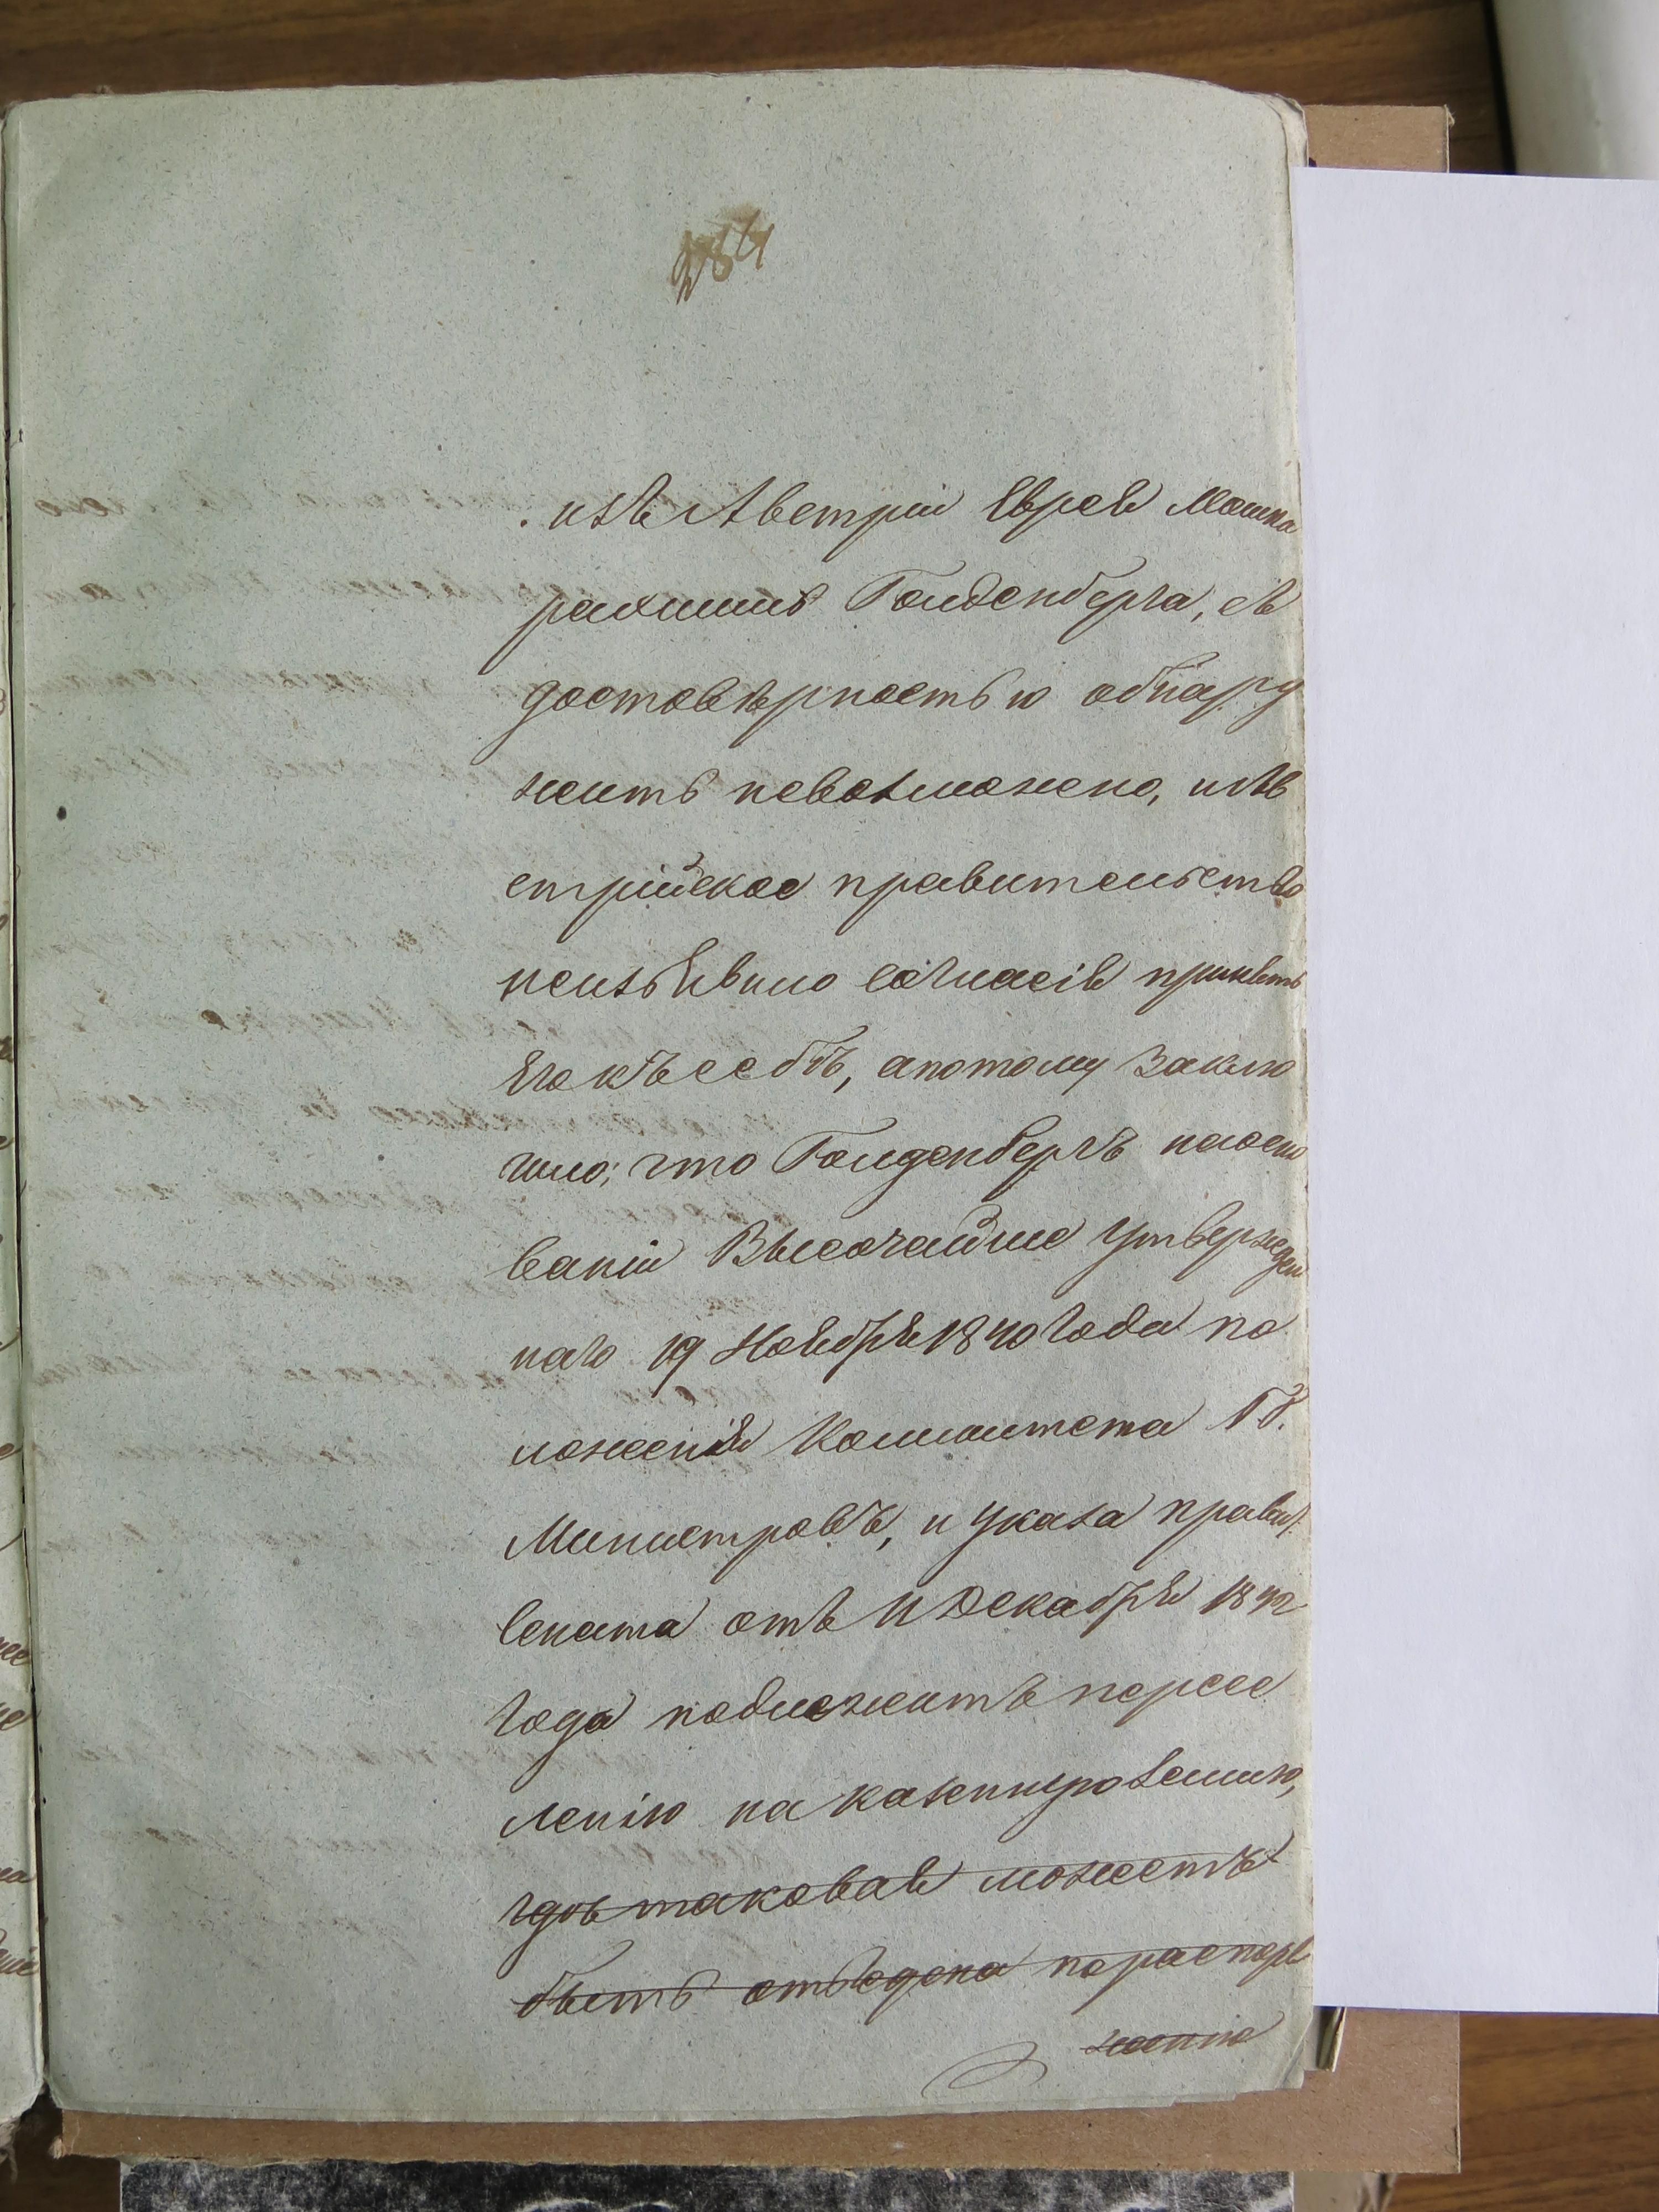 284
изъ Австріи Еврея Мошка
рахмиля Голденберга, съ
достовѣрностью обнару
жить невозможно, и Ав
стрійское правительство
неизъявило согласія принять
Его къ себѣ, апотому заклю
чило; что Голденбергъ наосно
ваніи Высочайше утвержден
наго 19 Ноября 1840 Года по
ложенія Коммитета ГГ.
Министровъ, и указа правит.
Сената отъ 11 Декабря 1842
Года подлежитъ пересе
ленію на казенную землю,
гдѣ таковая можетъ
быть отведена пораспоря
женію